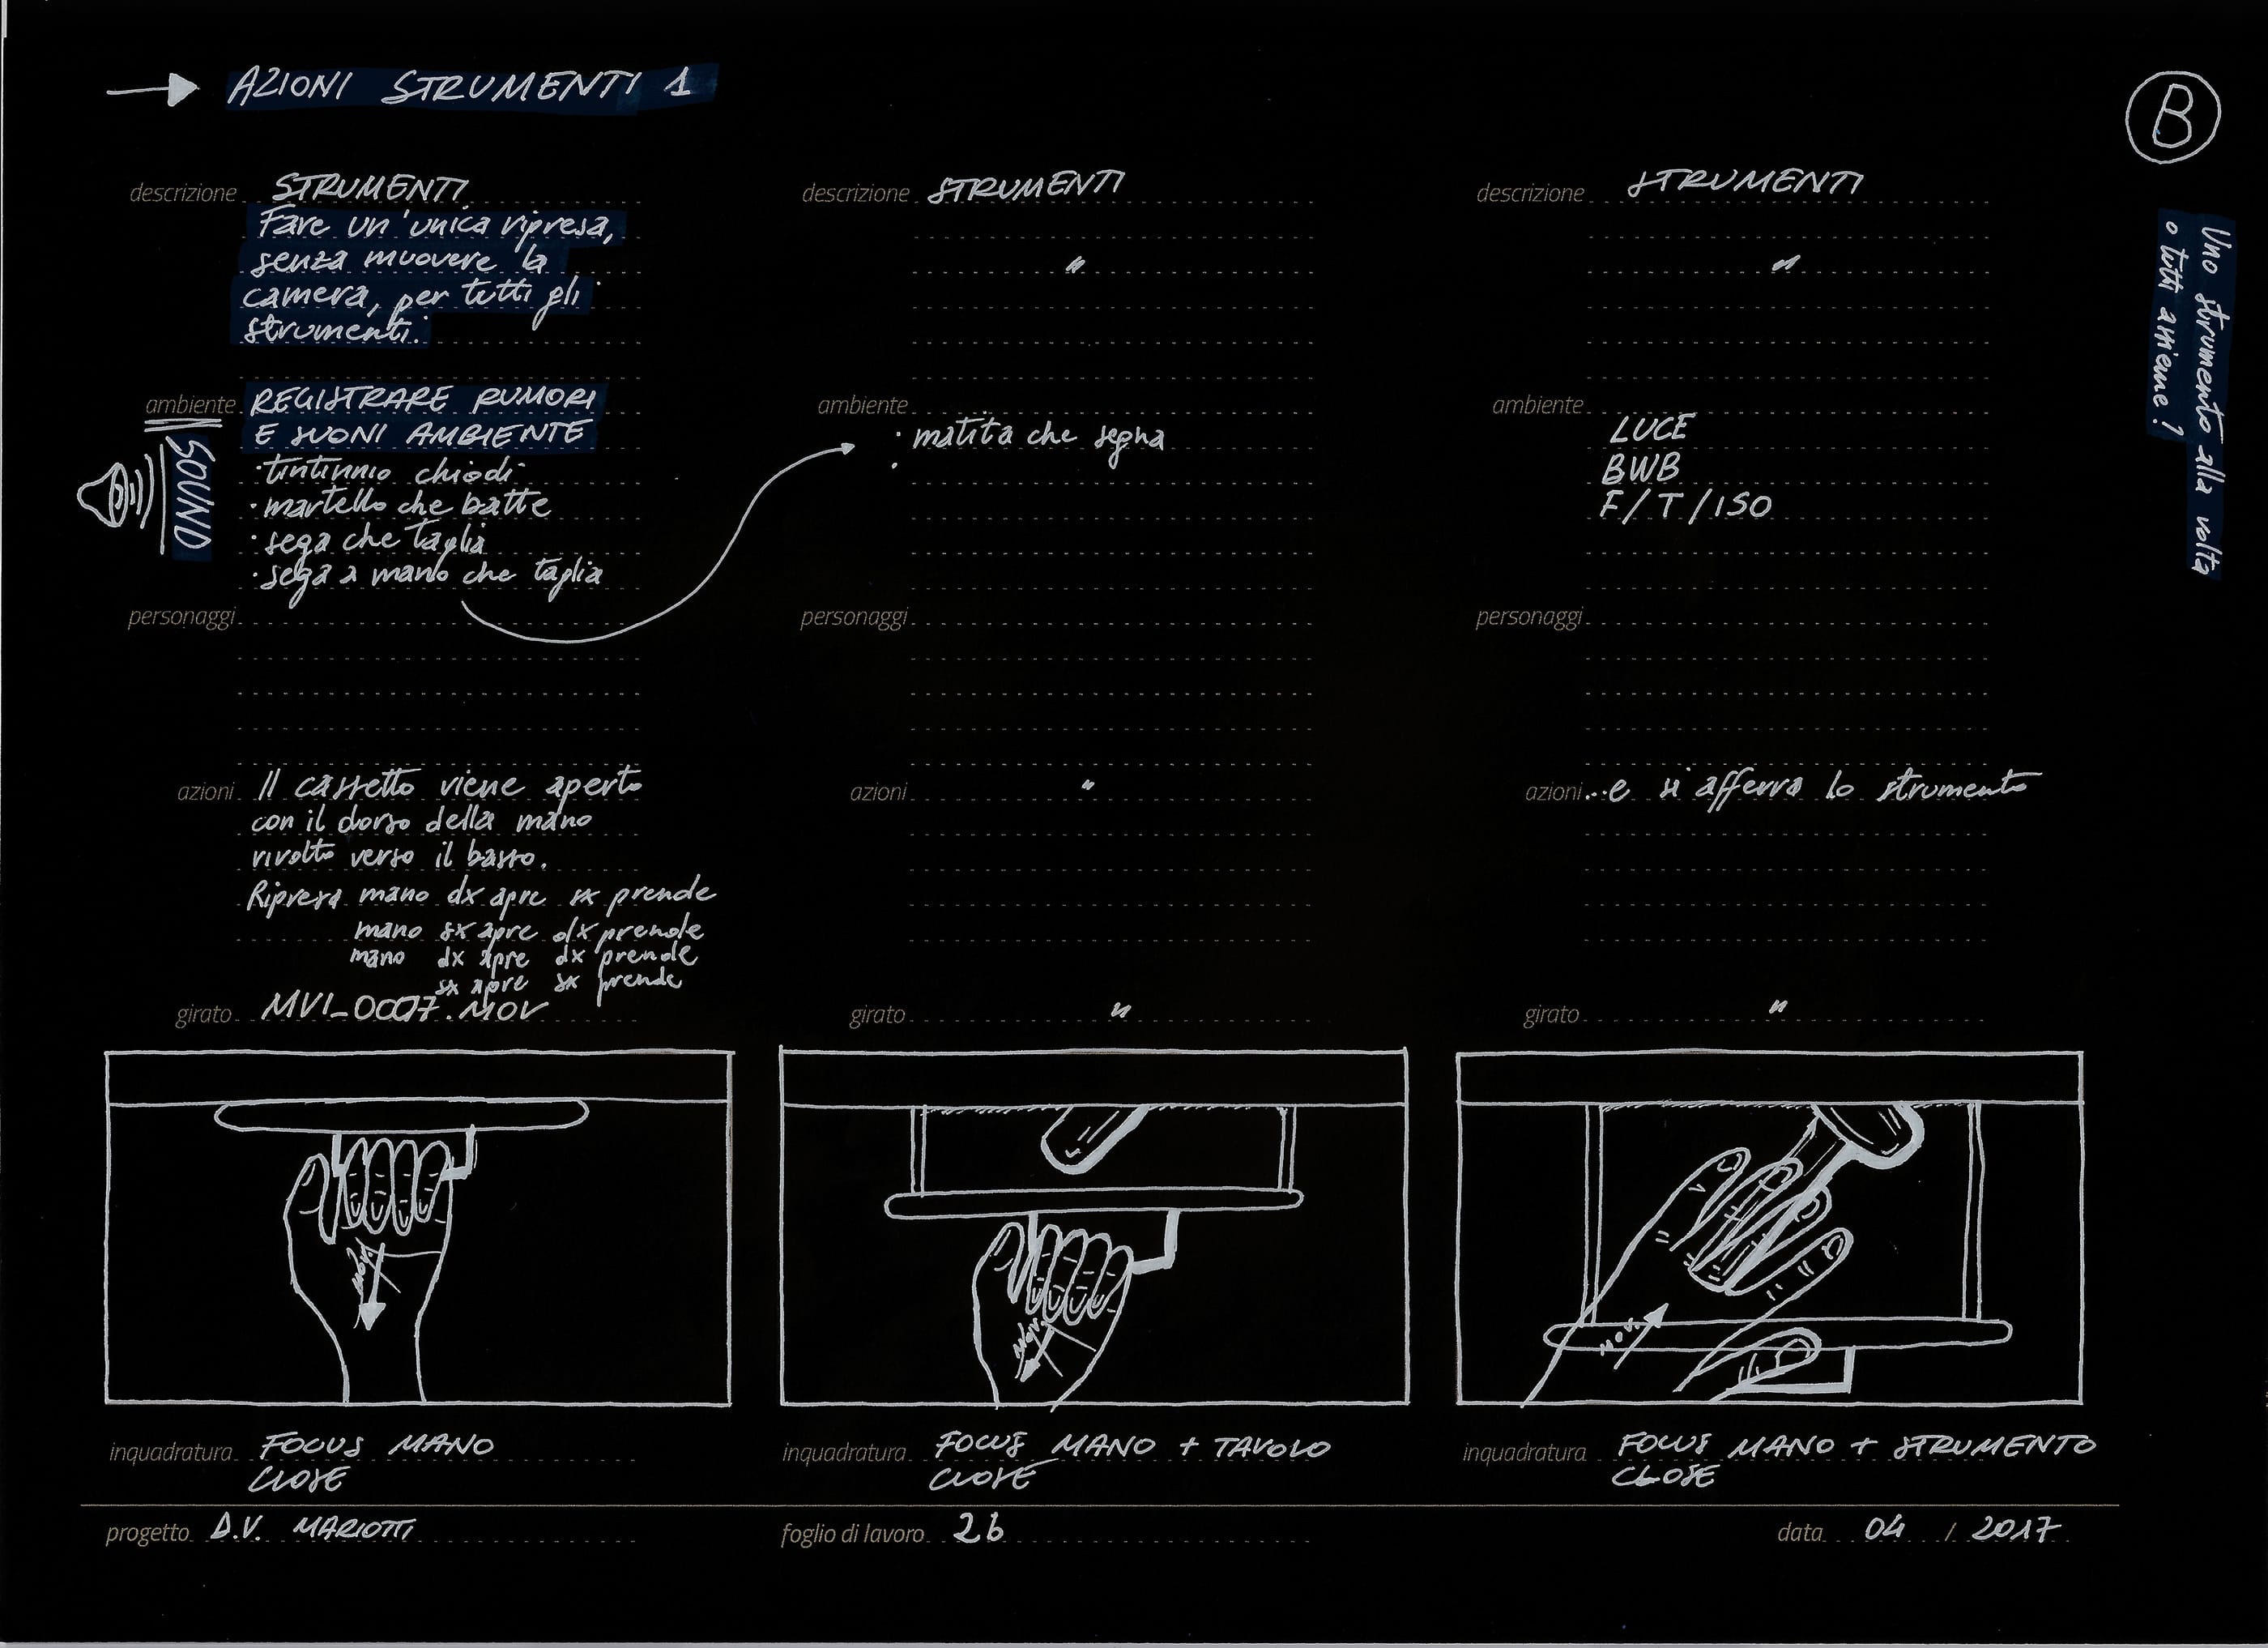 AZIONI STRUMENTI 1
B
Uno strumento alla volta
o tutti assieme?
descrizione STRUMENTI
Fare un'unica ripresa,
senza muovere la
camera, per tutti gli
strumenti.
ambiente REGISTRARE RUMORI
E SUONI AMBIENTE
SOUND
· tintinnio chiodi
· martello che batte
· sega che taglia
· sega a mano che taglia
personaggi
azioni Il cassetto viene aperto
con il dorso della mano
rivolto verso il basso.
Ripresa mano dx apre sx prende
mano sx apre dx prende
mano dx apre dx prende
sx apre sx prende
girato MVI_0007.MOV
mov.
inquadratura FOCUS MANO
CLOSE
descrizione STRUMENTI
"
ambiente
· matita che segna
·
personaggi
azioni "
girato "
mov.
inquadratura FOCUS MANO + TAVOLO
CLOSE
descrizione STRUMENTI
"
ambiente
LUCE
BWB
F/T/ISO
personaggi
azioni ...e si afferra lo strumento
girato "
mov.
inquadratura FOCUS MANO + STRUMENTO
CLOSE
progetto D.V. MARIOTTI
foglio di lavoro 2b
data 04 / 2017